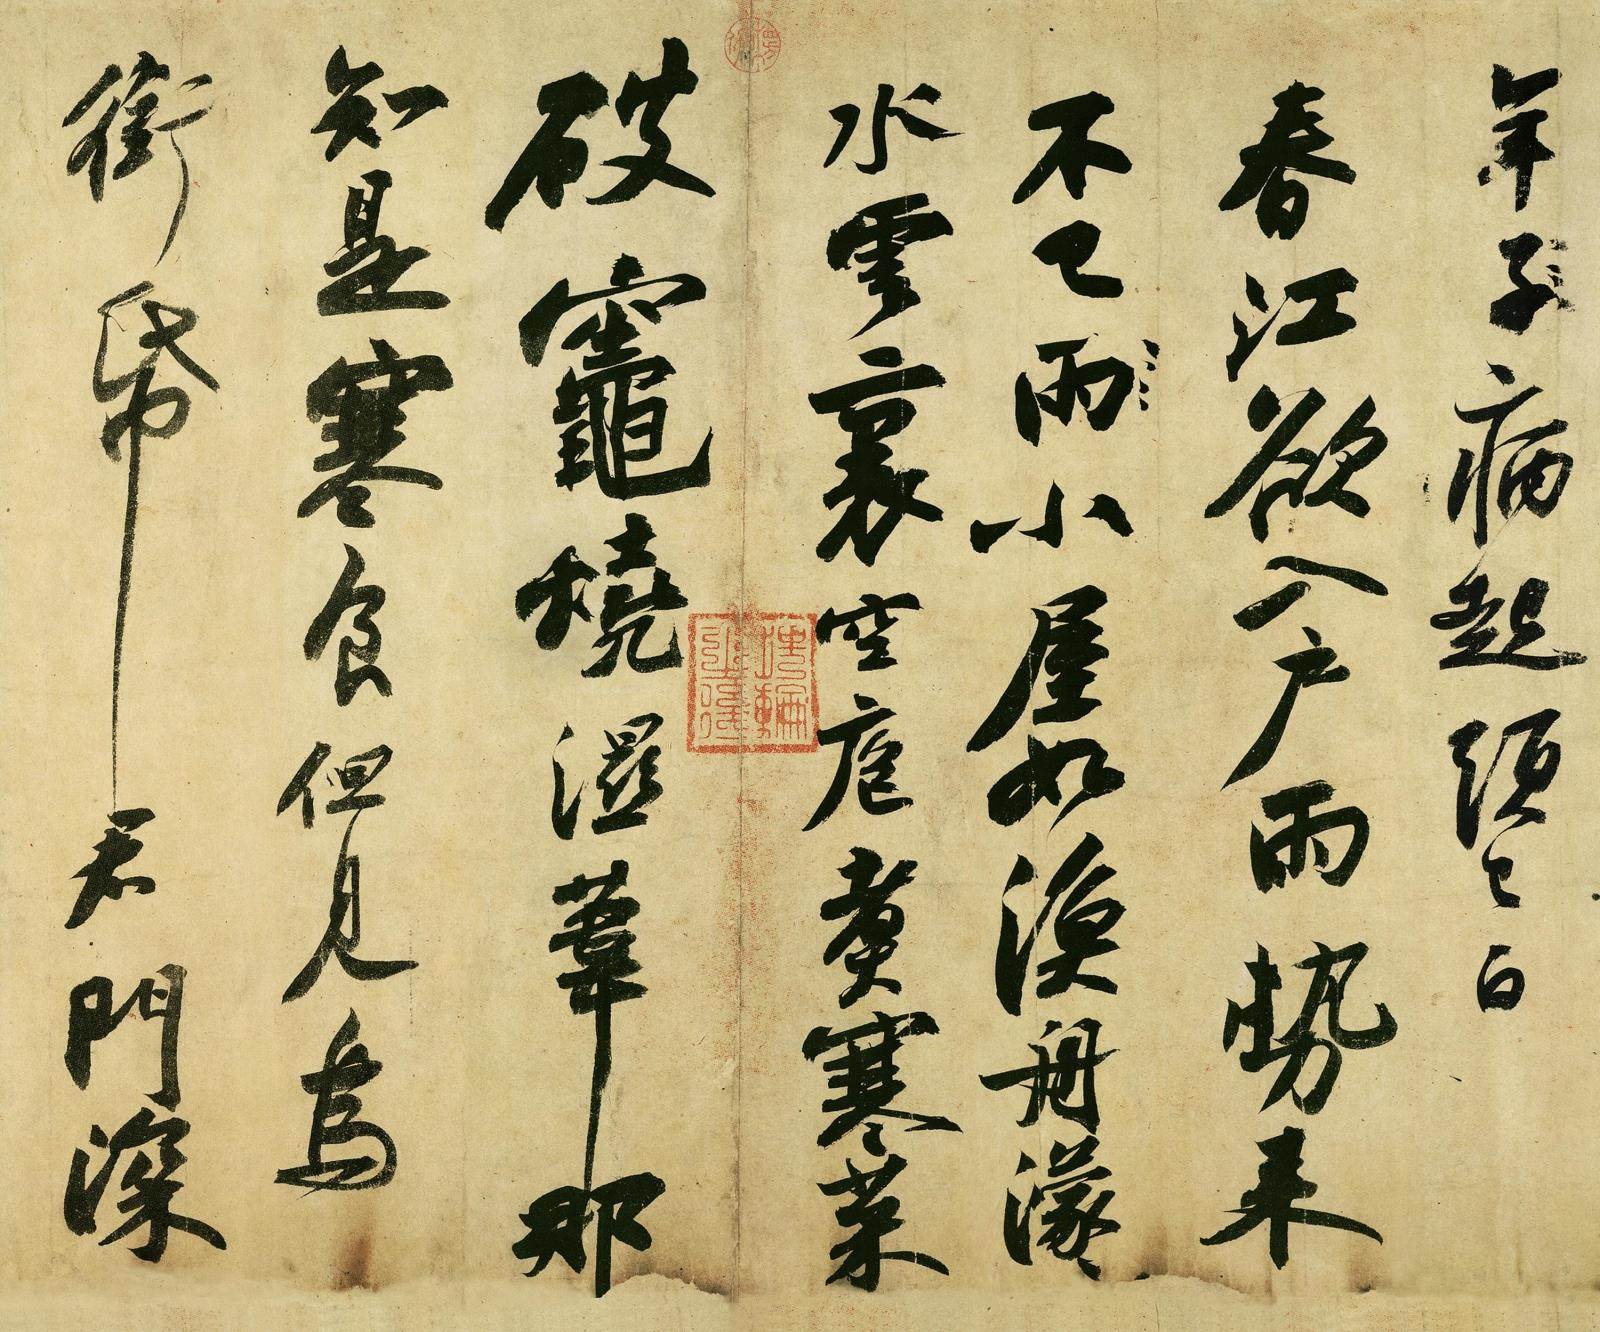 年子病起頭已白
春江欲入戶雨勢来
不已雨小屋如漁舟濛
水雲裏空庖煮寒菜
破竈燒濕葦那
知是寒食但見烏
銜帋君門深
埋輪之後